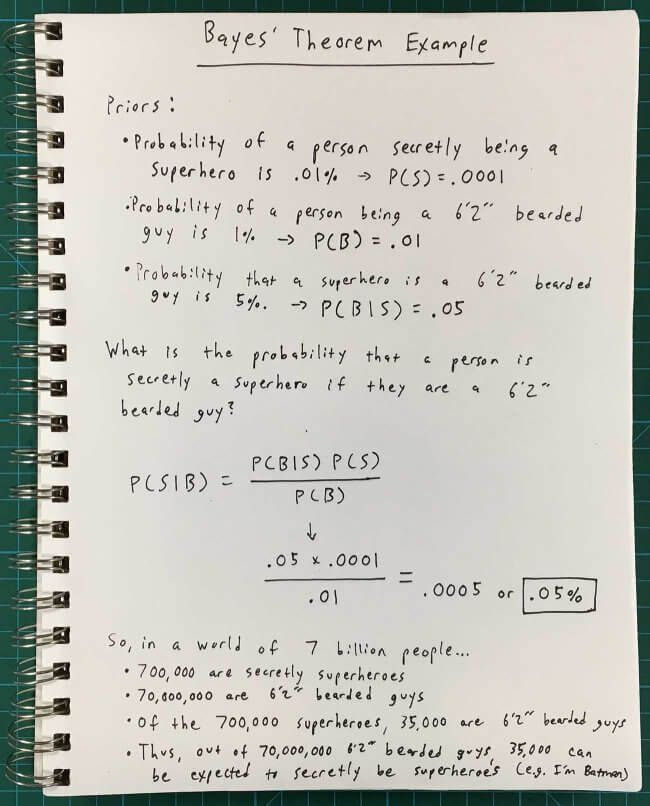 Bayes' Theorem Example
Priors:
• Probability of a person secretly being a
superhero is .01% → P(S) = .0001
• Probability of a person being a 6'2" bearded
guy is 1% → P(B) = .01
• Probability that a superhero is a 6'2" bearded
guy is 5%. → P(B|S) = .05
What is the probability that a person is
secretly a superhero if they are a 6'2"
bearded guy?
P(S|B) = P(B|S) P(S) / P(B)
↓
.05 x .0001 / .01 = .0005 or .05%
So, in a world of 7 billion people...
• 700,000 are secretly superheroes
• 70,000,000 are 6'2" bearded guys
• Of the 700,000 superheroes, 35,000 are 6'2" bearded guys
• Thus, out of 70,000,000 6'2" bearded guys, 35,000 can
be expected to secretly be superheroes (e.g. I'm Batman)